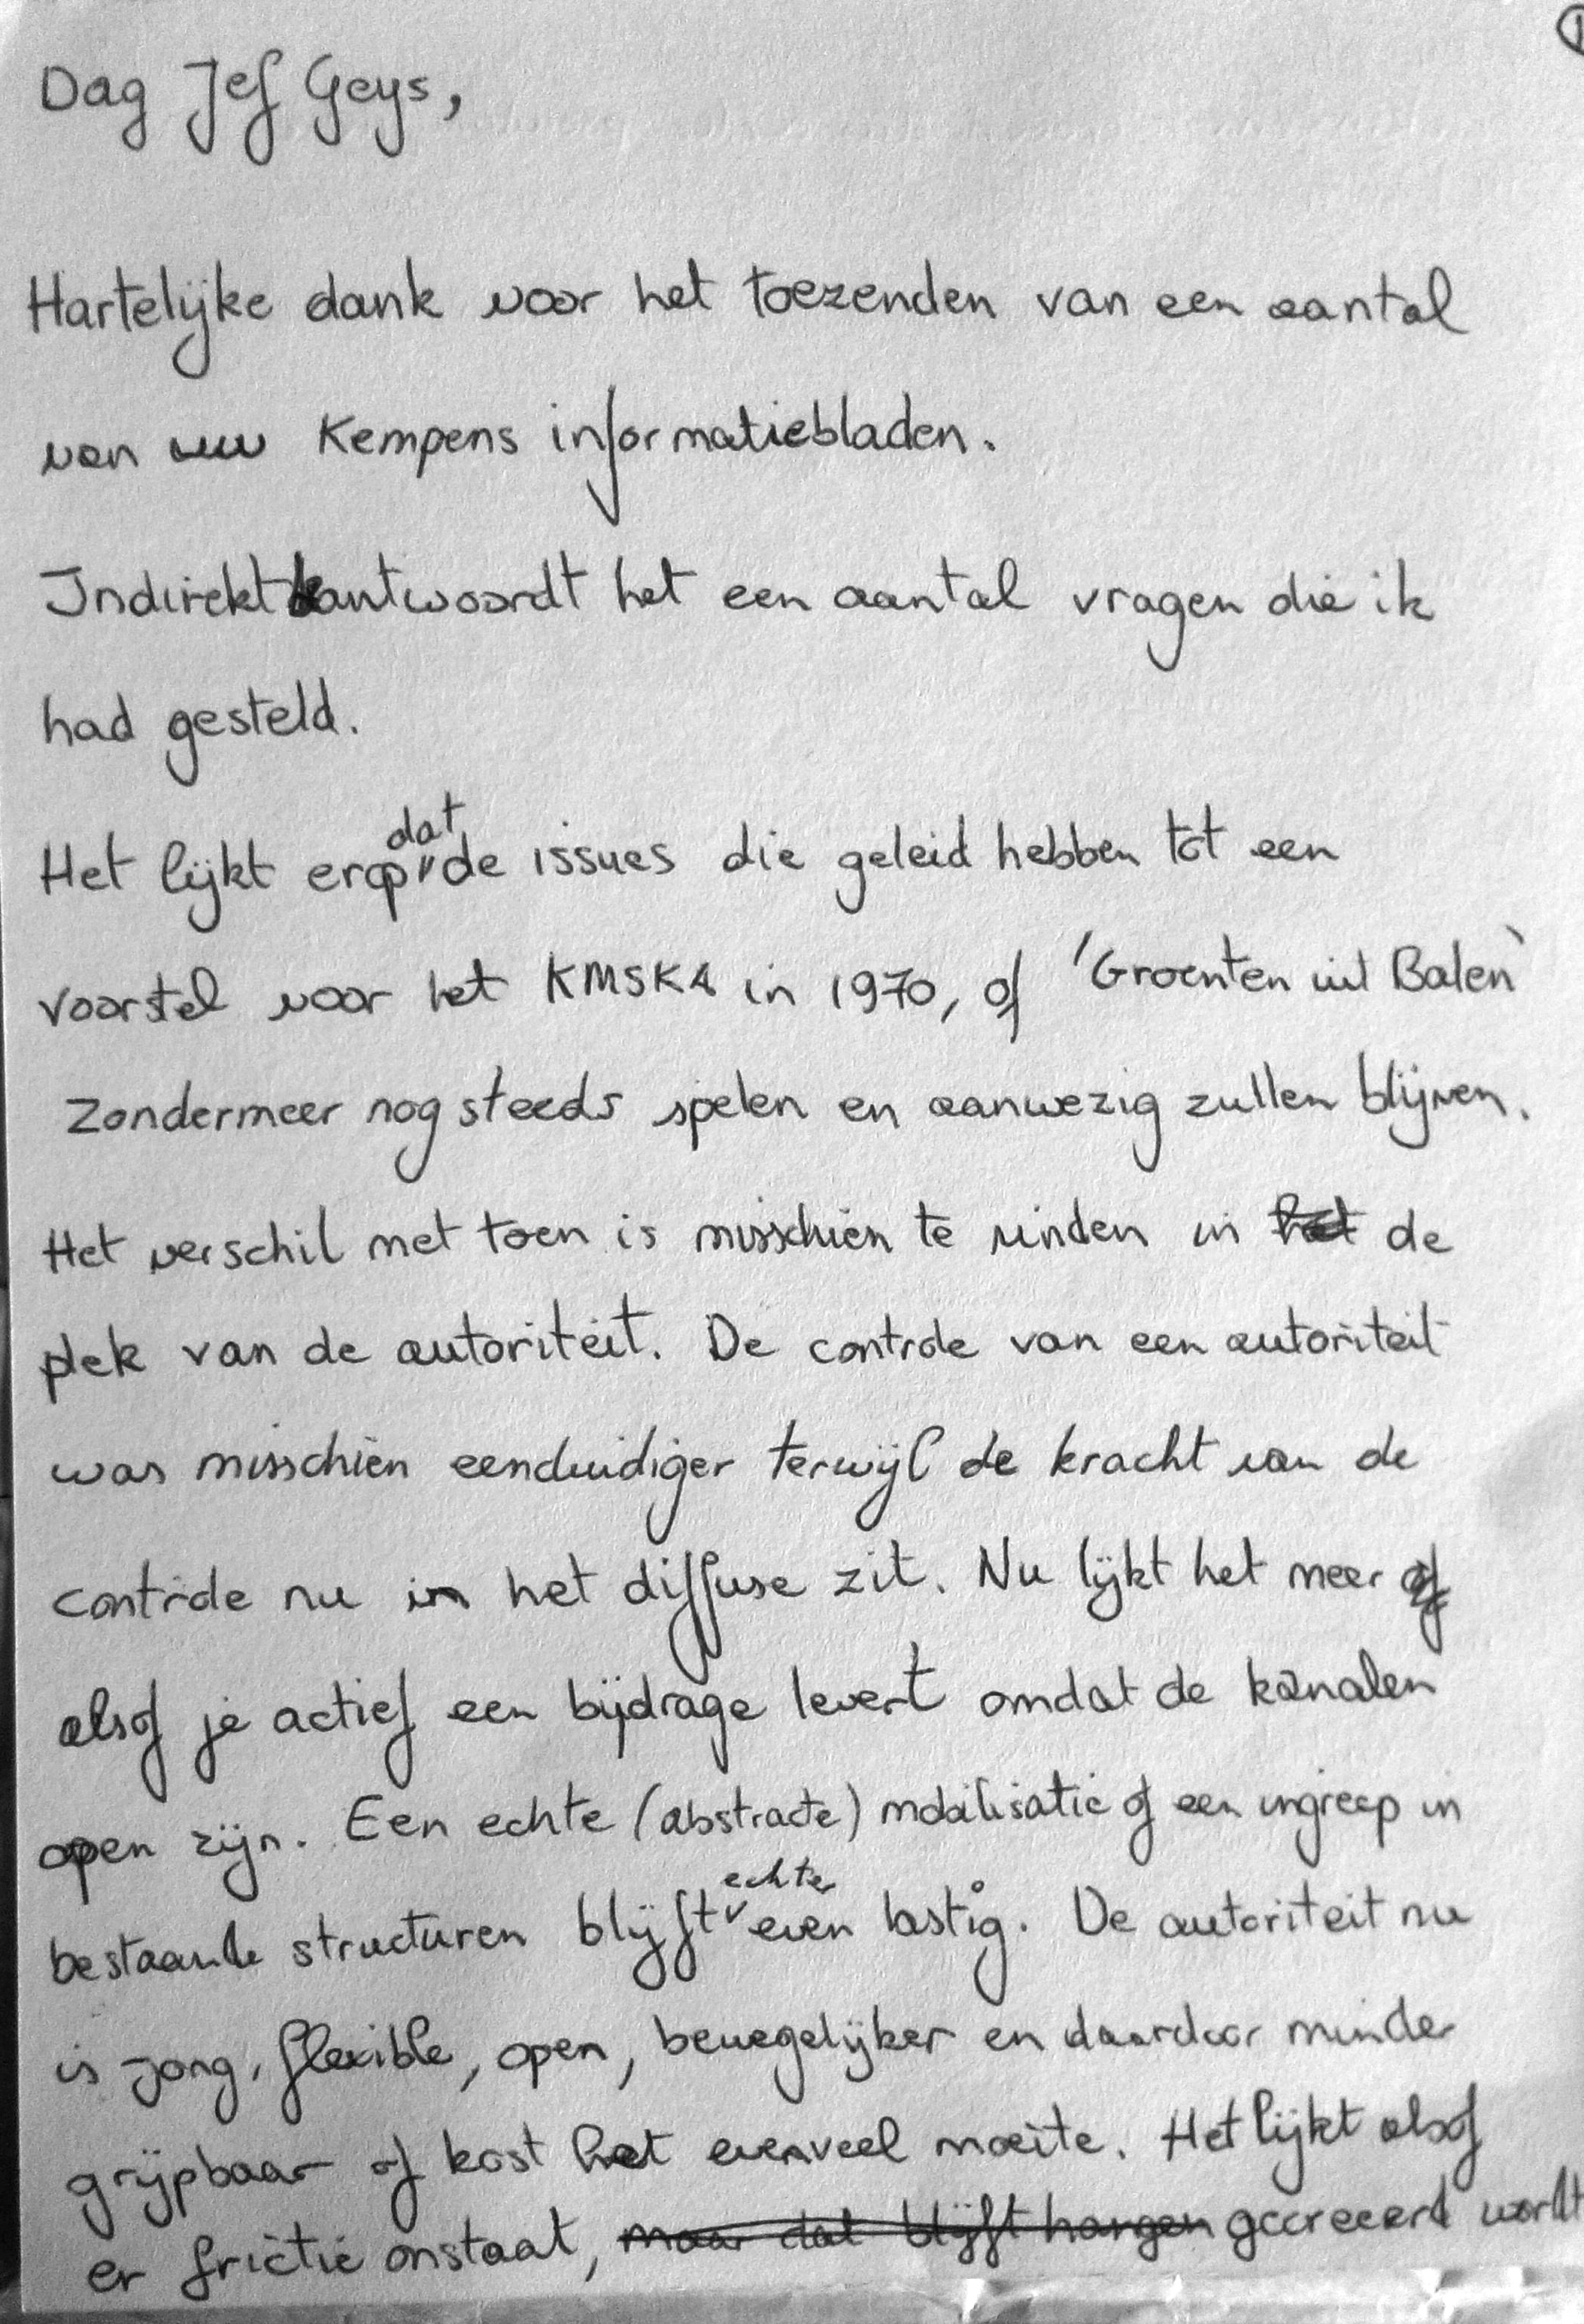 1
Dag Jef Geys,
Hartelijke dank voor het toezenden van een aantal
van uw Kempens informatiebladen.
Indirekt beantwoordt het een aantal vragen die ik
had gesteld.
Het lijkt erop dat de issues die geleid hebben tot een
voorstel voor het KMSKA in 1970, of 'Groenten uit Balen'
zondermeer nog steeds spelen en aanwezig zullen blijven.
Het verschil met toen is misschien te vinden in het de
plek van de autoriteit. De controle van een autoriteit
was misschien eenduidiger terwijl de kracht van de
controle nu in het diffuse zit. Nu lijkt het meer of
alsof je actief een bijdrage levert omdat de kanalen
open zijn. Een echte (abstracte) mobilisatie of een ingreep in
bestaande structuren blijft echter even lastig. De autoriteit nu
is jong, flexible, open, beweegelijker en daardoor minder
grijpbaar of kost het evenveel moeite. Het lijkt alsof
er frictie onstaat, maar dat blijft hangen gecreeerd wordt